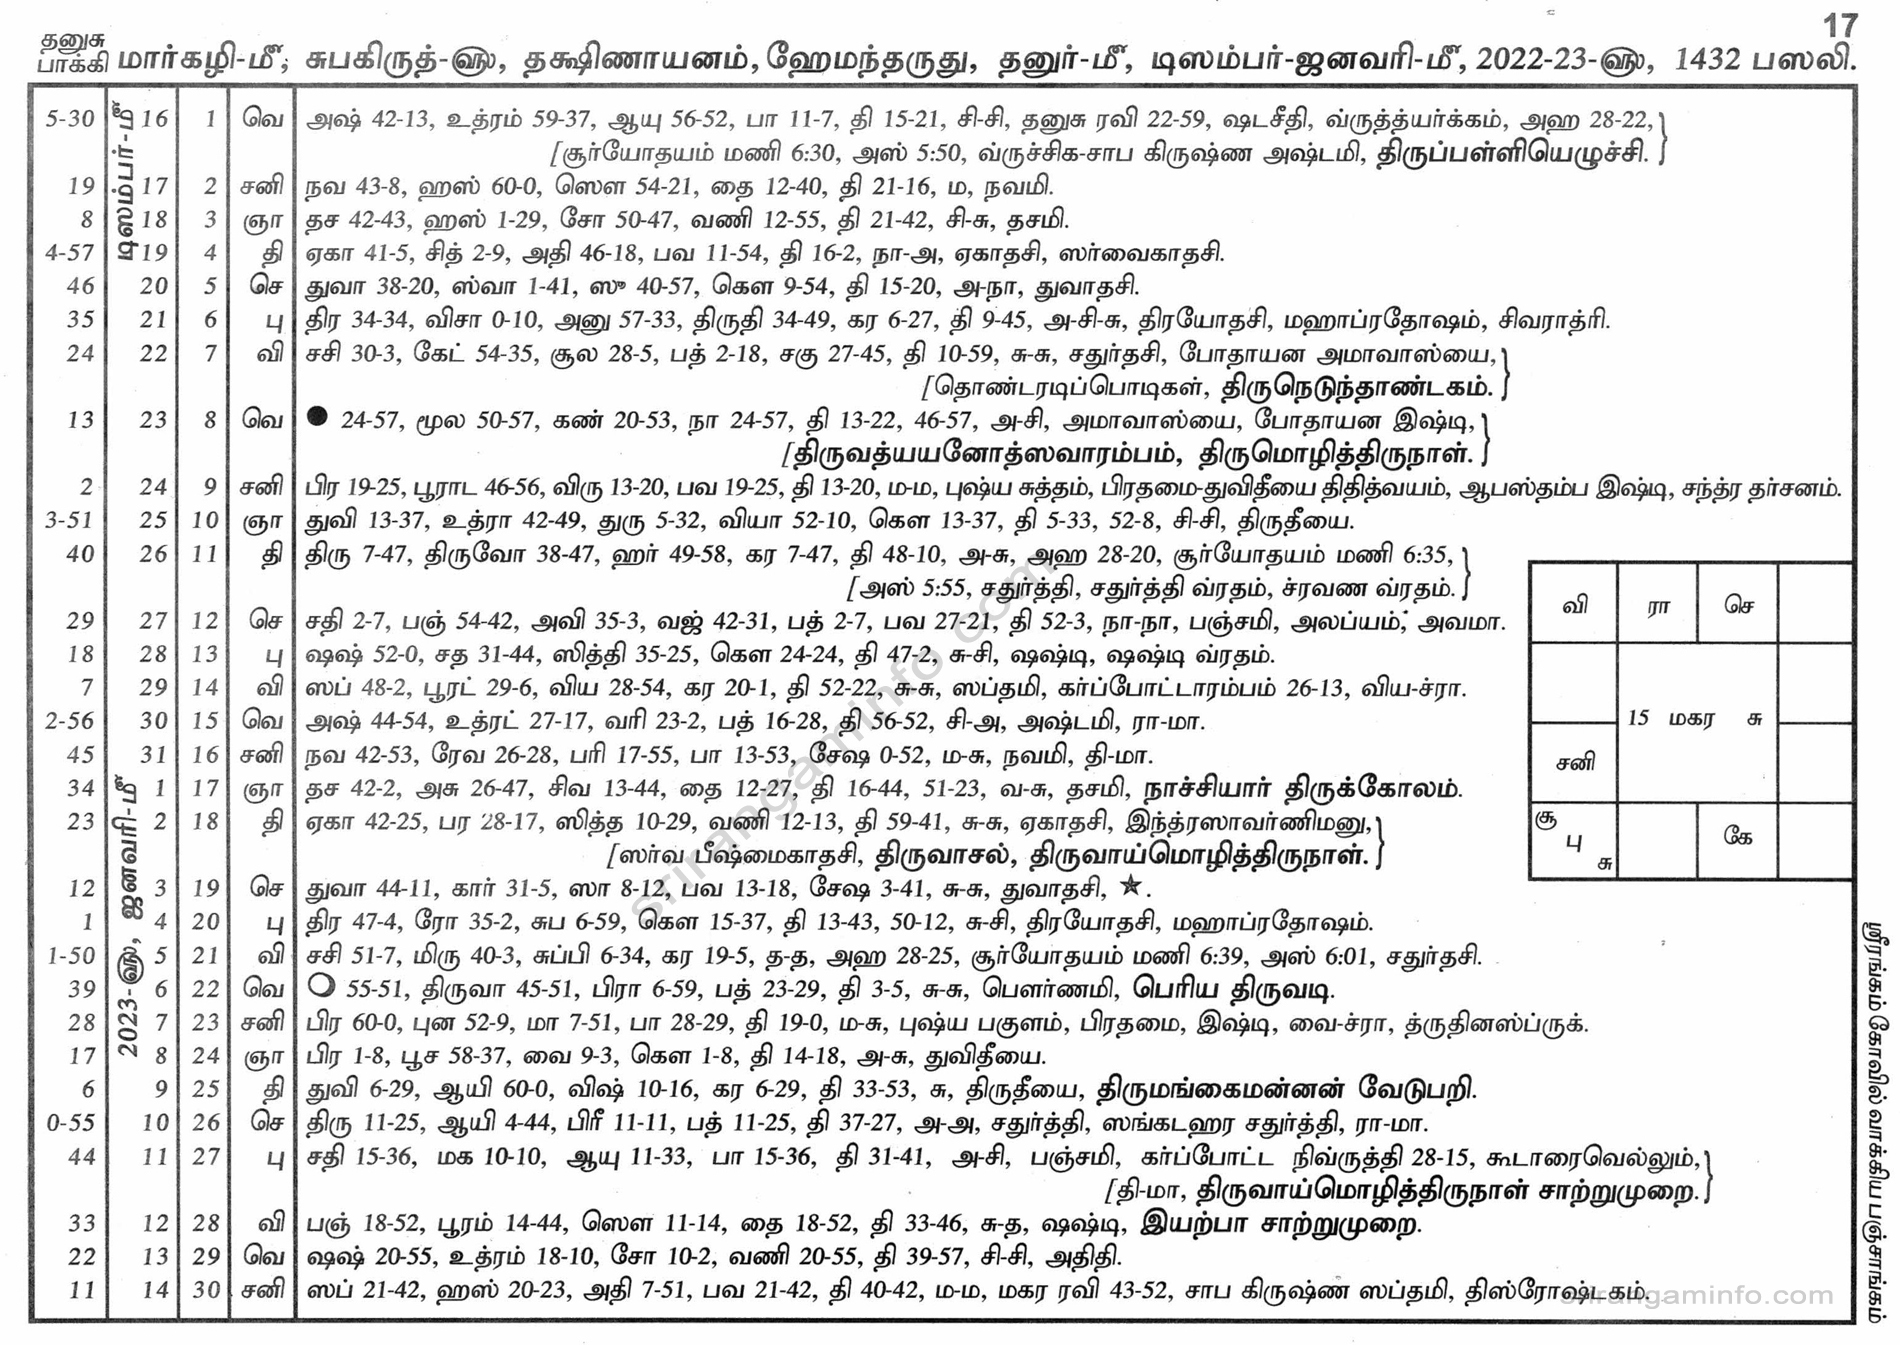 17
தனுசு
பாக்கி மார்கழி-மீ, சுபகிருத்-௵, தக்ஷிணாயனம், ஹேமந்தருது, தனுர்-மீ, டிஸம்பர்-ஜனவரி-மீ, 2022-23-௵, 1432 பஸலி.
டிஸம்பர்-மீ
5-30 16 1 வெ அஷ் 42-13, உத்ரம் 59-37, ஆயு 56-52, பா 11-7, தி 15-21, சி-சி, தனுசு ரவி 22-59, ஷடசீதி, வ்ருத்த்யர்க்கம், அஹ 28-22,}
[சூர்யோதயம் மணி 6:30, அஸ் 5:50, வ்ருச்சிக-சாப கிருஷ்ண அஷ்டமி, திருப்பள்ளியெழுச்சி.
19 17 2 சனி நவ 43-8, ஹஸ் 60-0, ஸௌ 54-21, தை 12-40, தி 21-16, ம, நவமி.
8 18 3 ஞா தச 42-43, ஹஸ் 1-29, சோ 50-47, வணி 12-55, தி 21-42, சி-சு, தசமி.
4-57 19 4 தி ஏகா 41-5, சித் 2-9, அதி 46-18, பவ 11-54, தி 16-2, நா-அ, ஏகாதசி, ஸர்வைகாதசி.
46 20 5 செ துவா 38-20, ஸ்வா 1-41, ஸு 40-57, கௌ 9-54, தி 15-20, அ-நா, துவாதசி.
35 21 6 பு திர 34-34, விசா 0-10, அனு 57-33, திருதி 34-49, கர 6-27, தி 9-45, அ-சி-சு, திரயோதசி, மஹாப்ரதோஷம், சிவராத்ரி.
24 22 7 வி சசி 30-3, கேட் 54-35, சூல 28-5, பத் 2-18, சகு 27-45, தி 10-59, சு-சு, சதுர்தசி, போதாயன அமாவாஸ்யை,}
[தொண்டரடிப்பொடிகள், திருநெடுந்தாண்டகம்.
13 23 8 வெ ● 24-57, மூல 50-57, கண் 20-53, நா 24-57, தி 13-22, 46-57, அ-சி, அமாவாஸ்யை, போதாயன இஷ்டி,}
[திருவத்யயனோத்ஸவாரம்பம், திருமொழித்திருநாள்.
2 24 9 சனி பிர 19-25, பூராட 46-56, விரு 13-20, பவ 19-25, தி 13-20, ம-ம, புஷ்ய சுத்தம், பிரதமை-துவிதீயை திதித்வயம், ஆபஸ்தம்ப இஷ்டி, சந்த்ர தர்சனம்.
3-51 25 10 ஞா துவி 13-37, உத்ரா 42-49, துரு 5-32, வியா 52-10, கௌ 13-37, தி 5-33, 52-8, சி-சி, திருதீயை.
40 26 11 தி திரு 7-47, திருவோ 38-47, ஹர் 49-58, கர 7-47, தி 48-10, அ-சு, அஹ 28-20, சூர்யோதயம் மணி 6:35,}
[அஸ் 5:55, சதுர்த்தி, சதுர்த்தி வ்ரதம், ச்ரவண வ்ரதம்.
29 27 12 செ சதி 2-7, பஞ் 54-42, அவி 35-3, வஜ் 42-31, பத் 2-7, பவ 27-21, தி 52-3, நா-நா, பஞ்சமி, அலப்யம், அவமா.
18 28 13 பு ஷஷ் 52-0, சத 31-44, ஸித்தி 35-25, கௌ 24-24, தி 47-2, சு-சி, ஷஷ்டி, ஷஷ்டி வ்ரதம்.
7 29 14 வி ஸப் 48-2, பூரட் 29-6, விய 28-54, கர 20-1, தி 52-22, சு-சு, ஸப்தமி, கர்ப்போட்டாரம்பம் 26-13, விய-ச்ரா.
2-56 30 15 வெ அஷ் 44-54, உத்ரட் 27-17, வரி 23-2, பத் 16-28, தி 56-52, சி-அ, அஷ்டமி, ரா-மா.
45 31 16 சனி நவ 42-53, ரேவ 26-28, பரி 17-55, பா 13-53, சேஷ 0-52, ம-சு, நவமி, தி-மா.
2023-௵, ஜனவரி-மீ
34 1 17 ஞா தச 42-2, அசு 26-47, சிவ 13-44, தை 12-27, தி 16-44, 51-23, வ-சு, தசமி, நாச்சியார் திருக்கோலம்.
23 2 18 தி ஏகா 42-25, பர 28-17, ஸித்த 10-29, வணி 12-13, தி 59-41, சு-சு, ஏகாதசி, இந்த்ரஸாவர்ணிமனு,}
[ஸர்வ பீஷ்மைகாதசி, திருவாசல், திருவாய்மொழித்திருநாள்.
12 3 19 செ துவா 44-11, கார் 31-5, ஸா 8-12, பவ 13-18, சேஷ 3-41, சு-சு, துவாதசி, ★.
1 4 20 பு திர 47-4, ரோ 35-2, சுப 6-59, கௌ 15-37, தி 13-43, 50-12, சு-சி, திரயோதசி, மஹாப்ரதோஷம்.
1-50 5 21 வி சசி 51-7, மிரு 40-3, சுப்பி 6-34, கர 19-5, த-த, அஹ 28-25, சூர்யோதயம் மணி 6:39, அஸ் 6:01, சதுர்தசி.
39 6 22 வெ ○ 55-51, திருவா 45-51, பிரா 6-59, பத் 23-29, தி 3-5, சு-சு, பௌர்ணமி, பெரிய திருவடி.
28 7 23 சனி பிர 60-0, புன 52-9, மா 7-51, பா 28-29, தி 19-0, ம-சு, புஷ்ய பகுளம், பிரதமை, இஷ்டி, வை-ச்ரா, த்ருதினஸ்ப்ருக்.
17 8 24 ஞா பிர 1-8, பூச 58-37, வை 9-3, கௌ 1-8, தி 14-18, அ-சு, துவிதீயை.
6 9 25 தி துவி 6-29, ஆயி 60-0, விஷ் 10-16, கர 6-29, தி 33-53, சு, திருதீயை, திருமங்கைமன்னன் வேடுபறி.
0-55 10 26 செ திரு 11-25, ஆயி 4-44, பிரீ 11-11, பத் 11-25, தி 37-27, அ-அ, சதுர்த்தி, ஸங்கடஹர சதுர்த்தி, ரா-மா.
44 11 27 பு சதி 15-36, மக 10-10, ஆயு 11-33, பா 15-36, தி 31-41, அ-சி, பஞ்சமி, கர்ப்போட்ட நிவ்ருத்தி 28-15, கூடாரைவெல்லும்,}
[தி-மா, திருவாய்மொழித்திருநாள் சாற்றுமுறை.
33 12 28 வி பஞ் 18-52, பூரம் 14-44, ஸௌ 11-14, தை 18-52, தி 33-46, சு-த, ஷஷ்டி, இயற்பா சாற்றுமுறை.
22 13 29 வெ ஷஷ் 20-55, உத்ரம் 18-10, சோ 10-2, வணி 20-55, தி 39-57, சி-சி, அதிதி.
11 14 30 சனி ஸப் 21-42, ஹஸ் 20-23, அதி 7-51, பவ 21-42, தி 40-42, ம-ம, மகர ரவி 43-52, சாப கிருஷ்ண ஸப்தமி, திஸ்ரோஷ்டகம்.
வி ரா செ
15 மகர சு
சனி
சூ
பு
சு
கே
ஸ்ரீரங்கம் கோவில் வாக்கிய பஞ்சாங்கம்
srirangaminfo.com
srirangaminfo.com